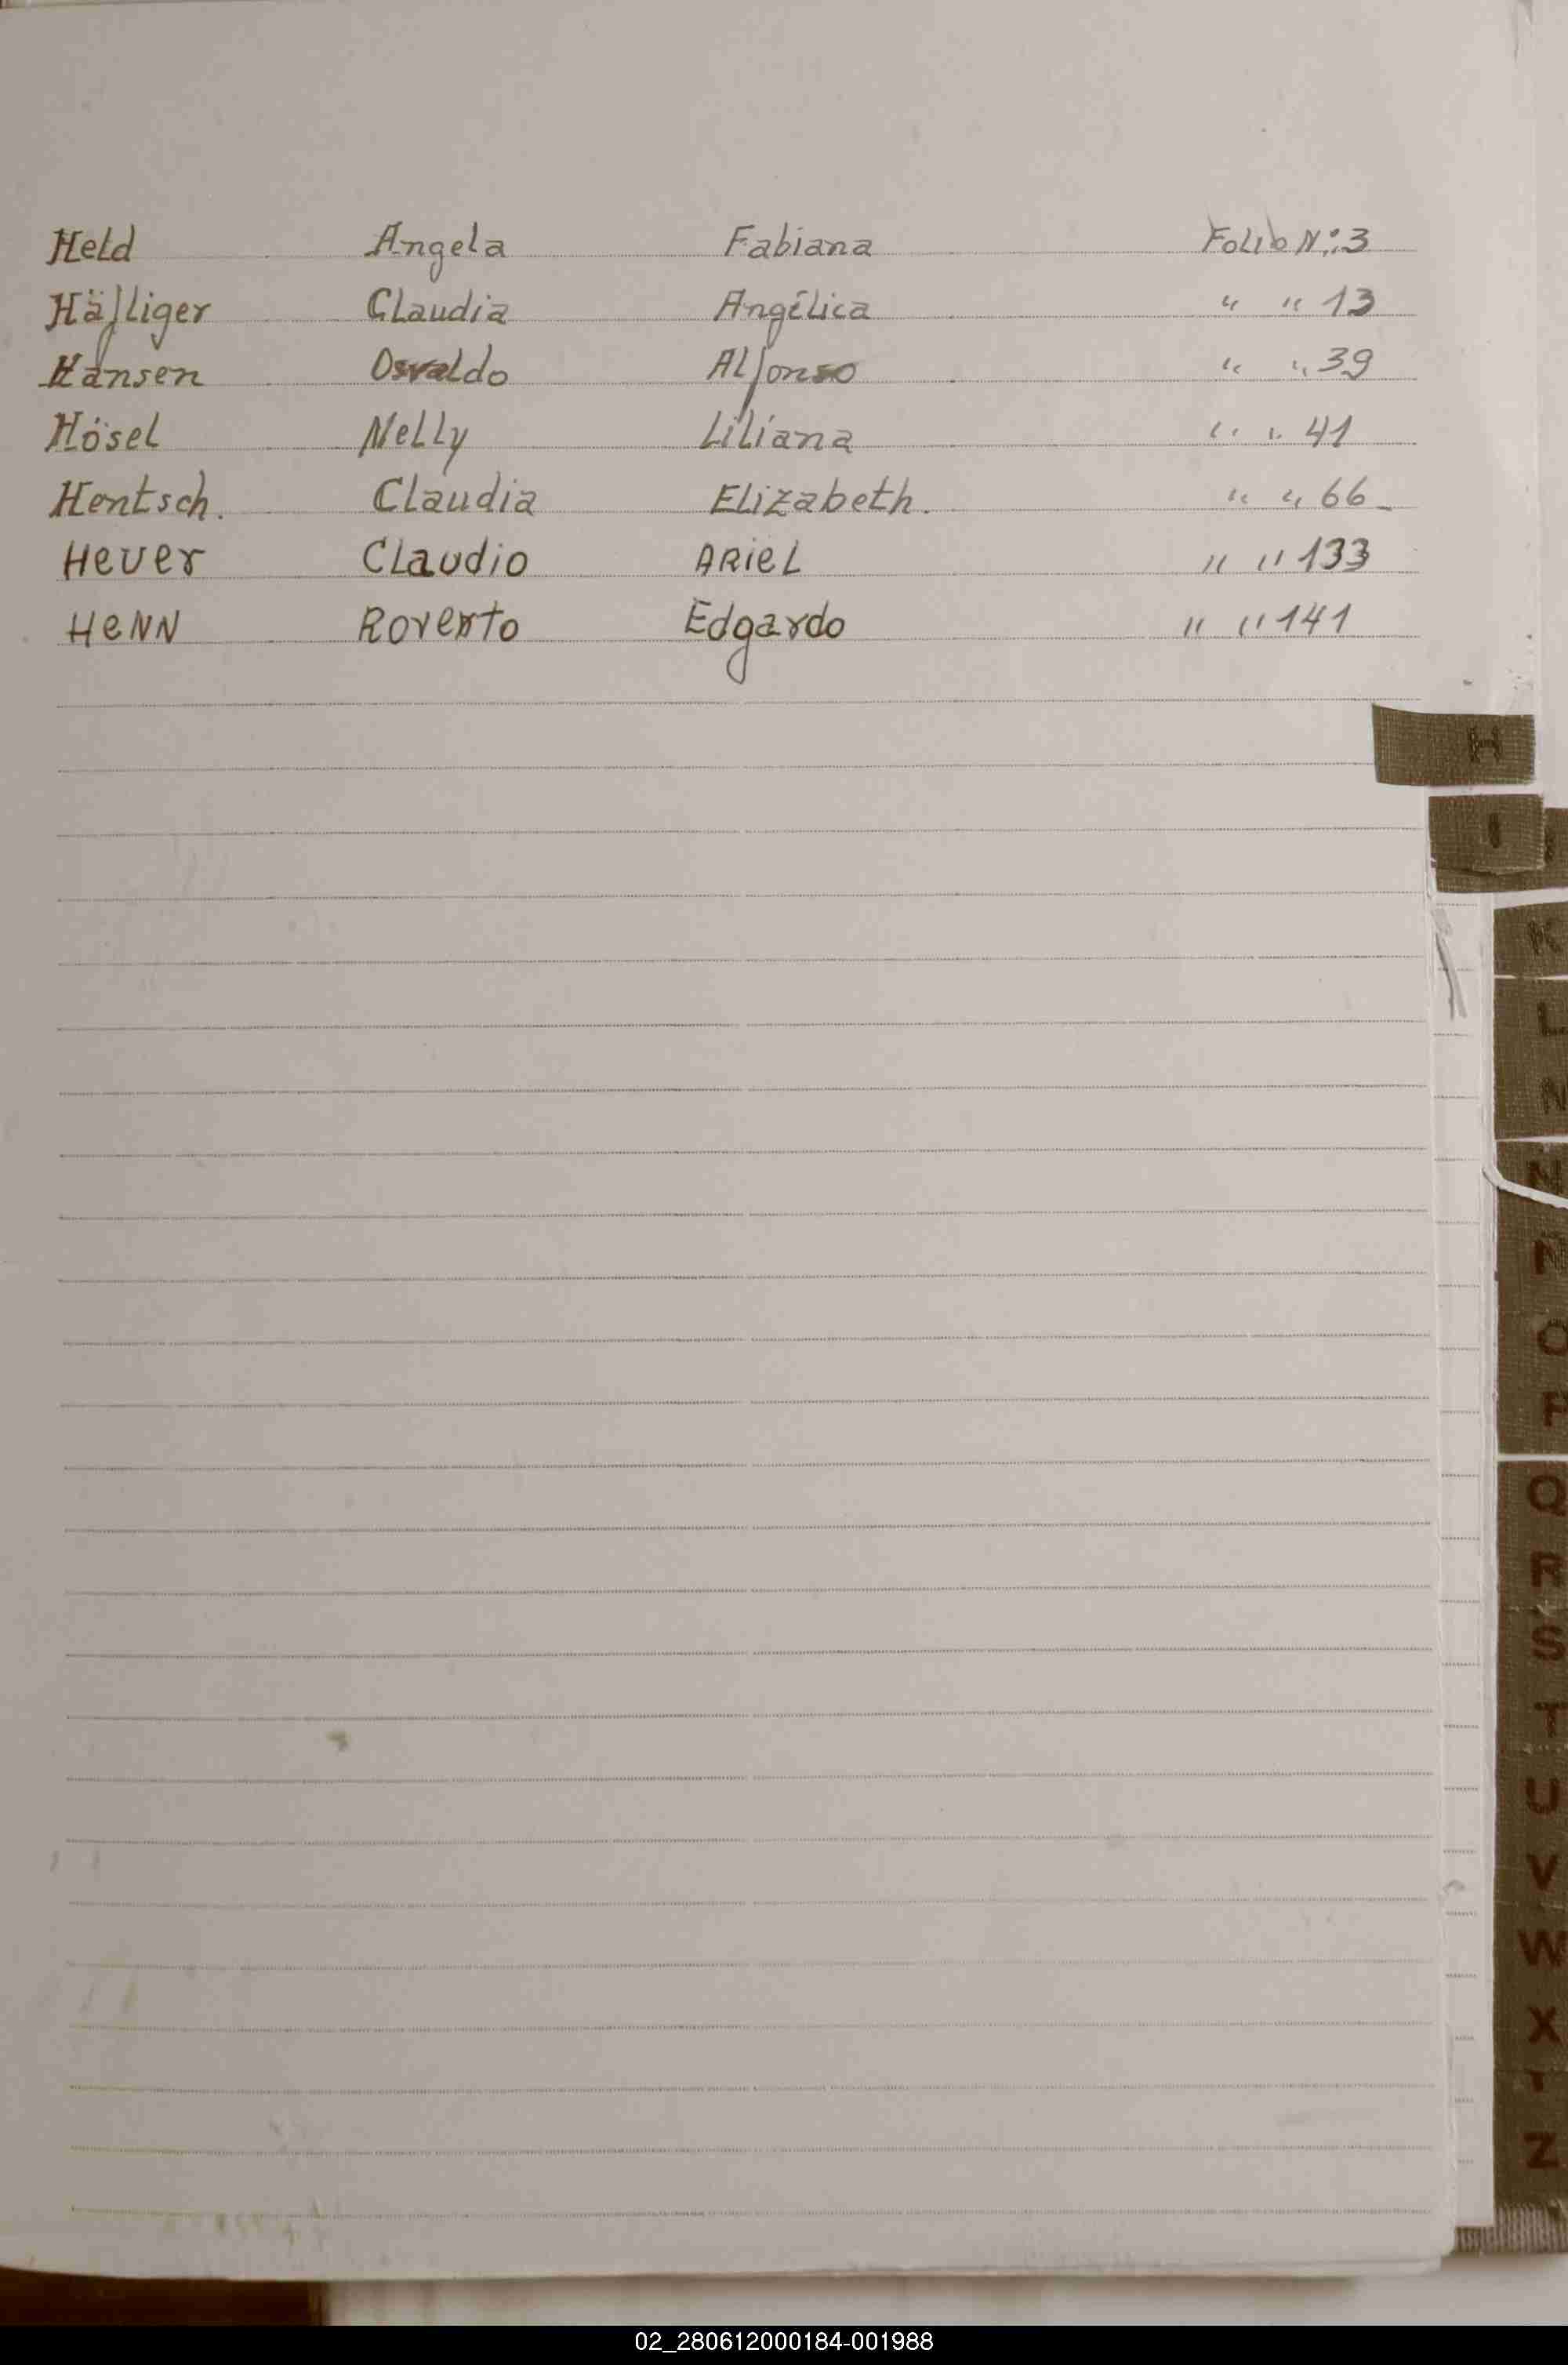 Held Angela Fabiana Folio N.: 3
Häfliger Claudia Angélica " " 13
Hansen Osvaldo Alfonso " " 39
Hösel Nelly Liliana " " 41
Hentsch. Claudia Elizabeth. " " 66_
Heuer Claudio ARiel " " 133
HeNN Roverto Edgardo " " 141
H
I
K
L
N
N
N
O
P
Q
R
S
T
U
V
W
X
Z
02_280612000184-001988